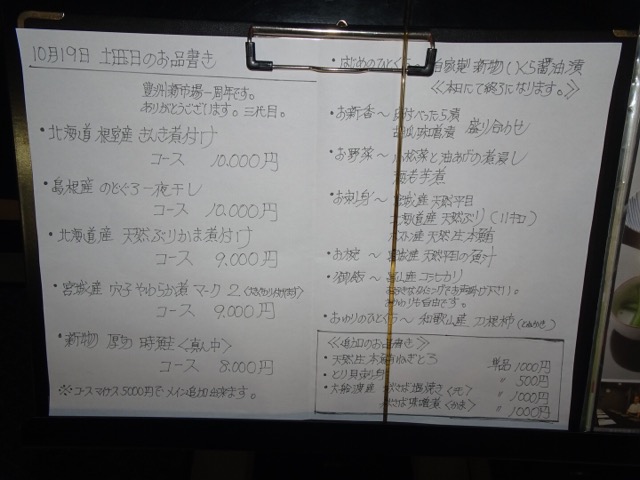 10月19日 土曜日のお品書き
豊洲新市場一周年です。
ありがとうございます。三代目。
・北海道 根室産 きんき煮付け
コース 10,000円
・島根産 のどぐろ一夜干し
コース 10,000円
・北海道産 天然ぶりかま煮付け
コース 9,000円
・宮城産 穴子やわらか煮 マーク2
コース 9,000円
・新物 厚切 時鮭<真ん中>
コース 8,000円
※コースマイナス5000円でメイン追加出来ます。
・はじめのひとくち 自家製 新物いくら醤油漬
≪本日にて終了になります。≫
・お新香〜 べったら漬
胡瓜味噌漬 盛り合わせ
・お野菜〜 小松菜と油あげの煮浸し
海老芋煮
・お刺身〜 宮城産 天然平目
北海道産 天然ぶり(11キロ)
ボストン産 天然生本鮪
・お椀〜 宮城産 天然平目の魚汁
・御飯〜 富山産コシヒカリ
おかわりも自由です。
・おわりのひとくち〜 和歌山産 刀根柿
≪追加のお品書き≫
・天然生本鮪ねぎとろ 単品 1000円
・とり貝刺身 〃 500円
・大船渡産 さば塩焼き 〃 1000円
さば味噌煮<かま> 〃 1000円